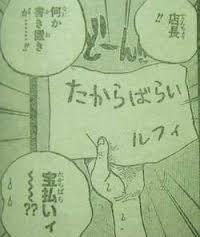 店長
てんちょう
何か
書き置き
が……!!
どーん!!
たからばらい
ルフィ
宝払い
〜〜〜??